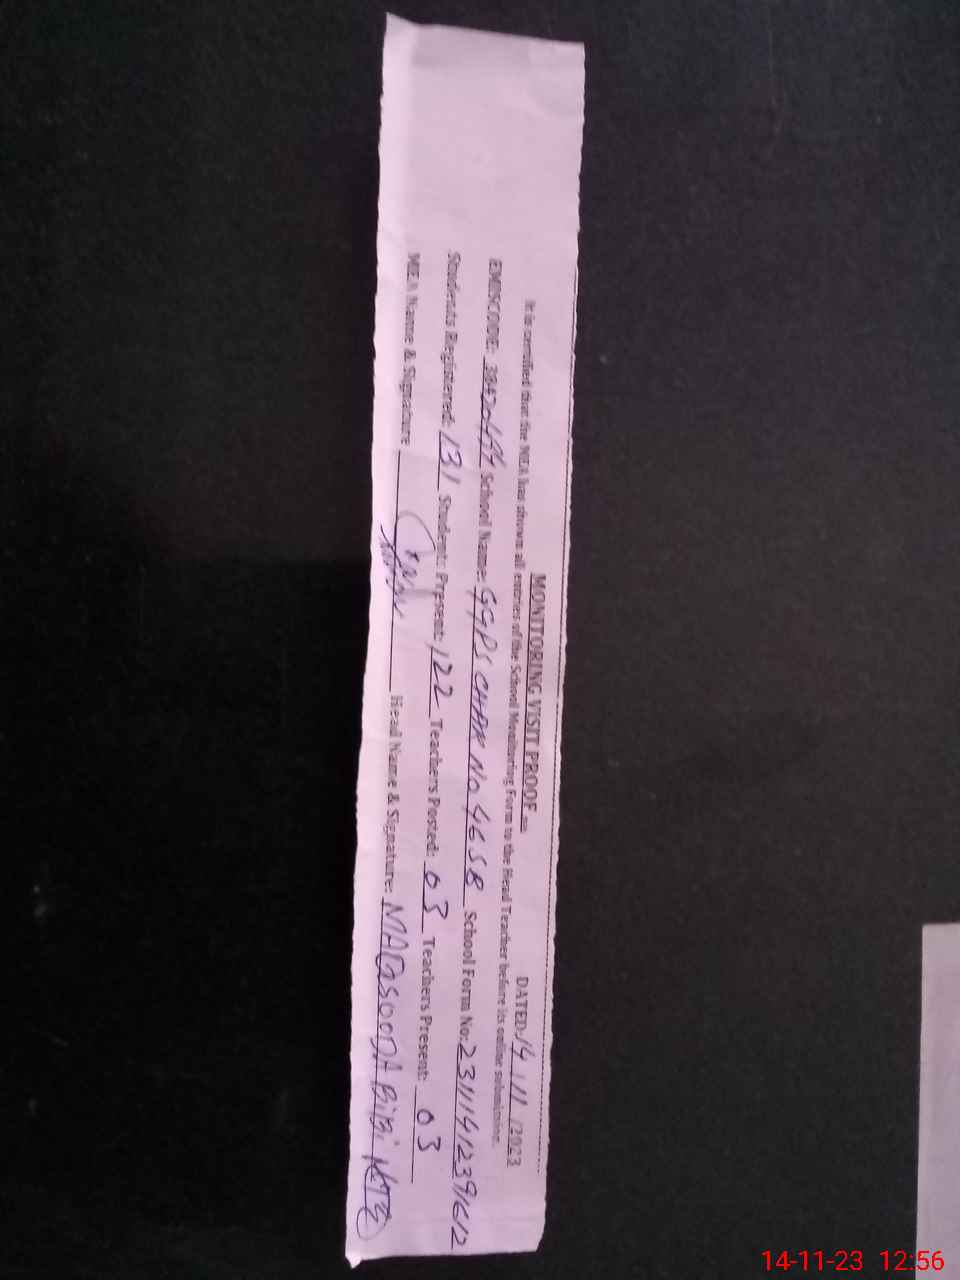 MONITORING VISIT PROOF DATED: 14 / 11 /2023
It is certified that the MEA has shown all entries of the School Monitoring Form to the Head Teacher before its online submission.
EMISCODE: School Name: GGPS CHAK No 46 SB School Form No: 23111412391612
Students Registered: 131 Students Present: 122 Teachers Posted: 03 Teachers Present: 03
MEA Name & Signature Head Name & Signature: MAQSOODA BiBi
14-11-23 12:56